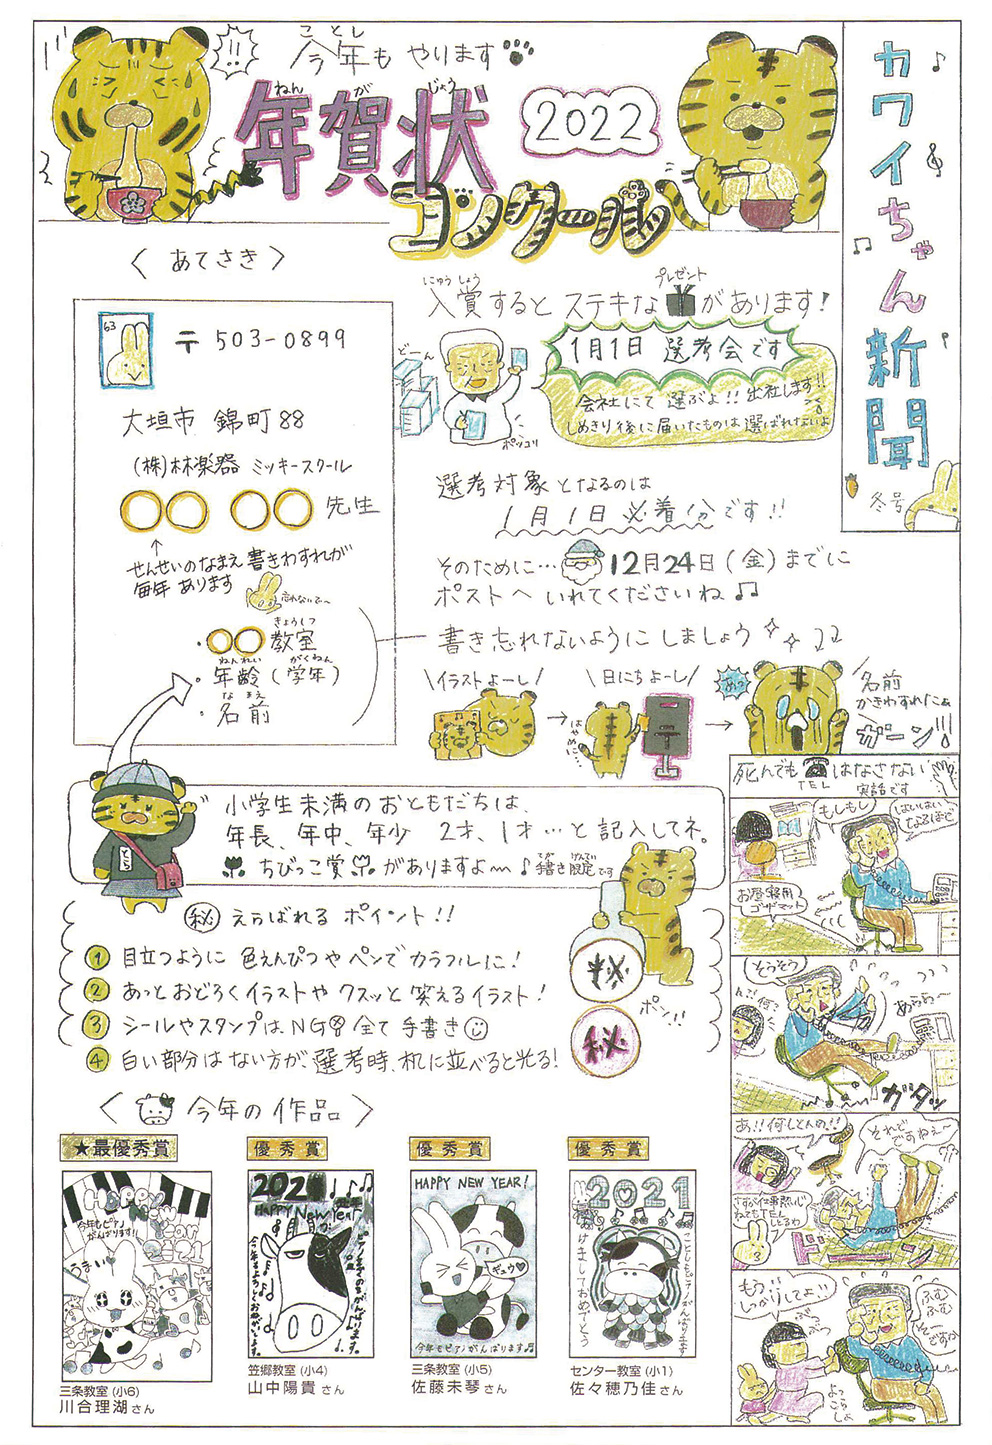 カワイちゃん新聞
冬号
今年もやります
ことし
!!
年賀状
ねんがじょう
2022
コンクール
〈あてさき〉
63
〒503-0899
大垣市 錦町88
(株)林楽器 ミッキースクール
○○ ○○先生
↑
せんせいのなまえ書きわすれが
毎年あります
忘れないで〜
・○○教室
きょうしつ
・年齢(学年)
ねんれい がくねん
・名前
なまえ
入賞するとステキな が あります!
にゅうしょう
プレゼント
どーん
ポッコリ
1月1日 選考会です
会社にて選ぶよ!!出社します!!
しめきり後に届いたものは選ばれないよ
選考対象となるのは
1月1日必着分です!!
そのために… 12月24日(金)までに
ポストへいれてくださいね♫
書き忘れないようにしましょう
\イラストよーし/
→
はやめに…
\日にちよーし/
→
あっ
名前
かきわすれたにゃぁ
ガーン!!
とら
小学生未満のおともだちは、
年長、年中、年少 2才、1才…と記入してネ。
ちびっこ賞 がありますよ〜♪手書き限定です
てがき げんてい
㊙えらばれるポイント!!
1 目立つように 色えんぴつやペンでカラフルに!
2 あっとおどろくイラストやクスッと笑えるイラスト!
3 シールやスタンプはNG 全て手書き
4 白い部分はない方が、選考時、机に並べると光る!
秘
ポン!!
秘
〈 今年の作品〉
★最優秀賞
HAPPY New Year 2021
今年もピアノがんばります!!
うまい
三条教室(小6)
川合理湖さん
優秀賞
2021
HAPPY New Year
今年もよろしくおねがいします。
笠郷教室(小4)
山中陽貴さん
優秀賞
HAPPY NEW YEAR!
ギュウ♡
今年もピアノがんばります♫
三条教室(小5)
佐藤未琴さん
優秀賞
2021
あけましておめでとう
ことしもピアノがんばります
センター教室(小1)
佐々穂乃佳さん
死んでも はなさない
TEL
実話です
もしもし
はいはい
なるほど
お昼寝用
ゴザマット
そうそう
ん?!何?
あらら〜
ガタッ
あ!!何しとんの!!
それで
ですねぇ〜
さすが仕事熱心
ねてもTEL
しとるわ
ドーン
もう!
しっかりしてよ!!
ふむ
ふむ
そーですか
よっ
こら
しょ